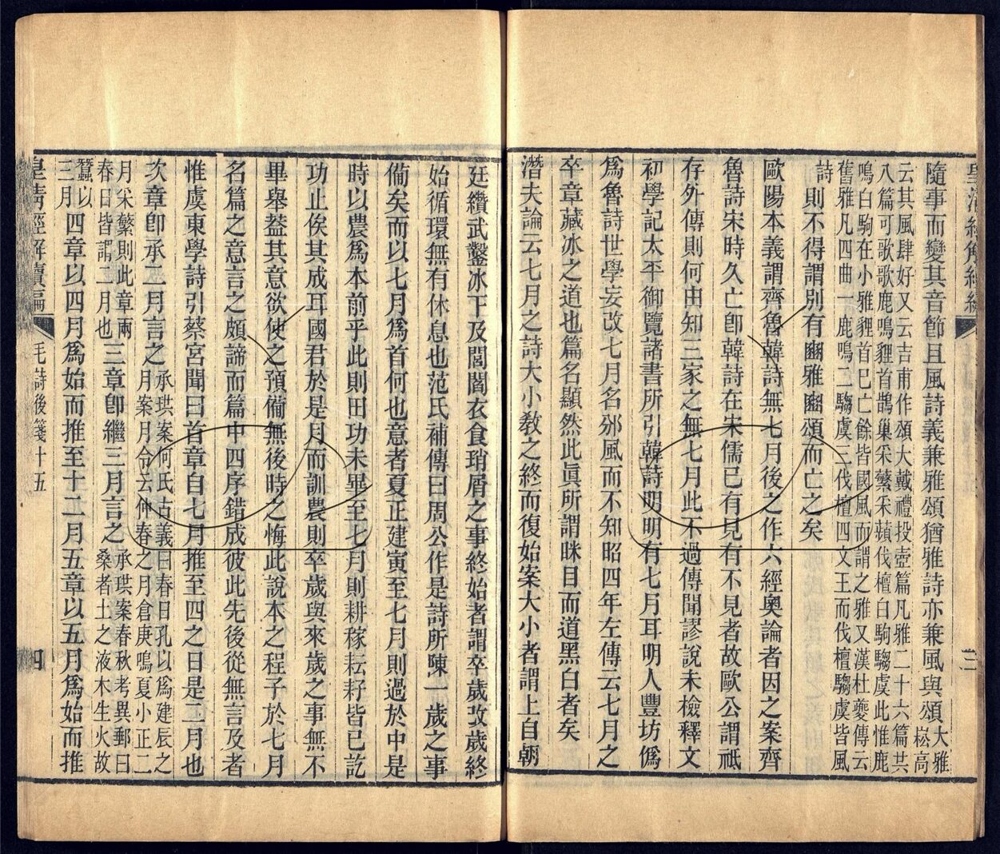 皇清經解續編
三
隨事而變其音節且風詩義兼雅頌猶雅詩亦兼風與頌大雅崧高
云其風肆好又云吉甫作頌大戴禮投壺篇凡雅二十六篇其
八篇可歌歌鹿鳴貍首鵲巢采蘩采蘋伐檀白駒騶虞此惟鹿
鳴白駒在小雅貍首已亡餘皆國風而謂之雅又漢杜夔傳云
舊雅凡四曲一鹿鳴二騶虞三伐檀四文王而伐檀騶虞皆風
詩則不得謂別有豳雅豳頌而亡之矣
歐陽本義謂齊魯韓詩無七月後之作六經奧論者因之案齊
魯詩宋時久亡卽韓詩在宋儒已有見有不見者故歐公謂祇
存外傳則何由知三家之無七月此不過傳聞謬說未檢釋文
初學記太平御覽諸書所引韓詩明明有七月耳明人豐坊僞
爲魯詩世學妄改七月名邠風而不知昭四年左傳云七月之
卒章藏冰之道也篇名顯然此眞所謂眯目而道黑白者矣
潛夫論云七月之詩大小敎之終而復始案大小者謂上自朝
廷纘武鑿冰下及閭閻衣食瑣屑之事終始者謂卒歲改歲終
始循環無有休息也范氏補傳曰周公作是詩所陳一歲之事
備矣而以七月爲首何也意者夏正建寅至七月則過於中是
時以農爲本前乎此則田功未畢至七月則耕稼耘耔皆已訖
功止俟其成耳國君於是月而訓農則卒歲與來歲之事無不
畢舉葢其意欲使之預備無後時之悔此說本之程子於七月
名篇之意言之頗諦而篇中四序錯成彼此先後從無言及者
惟虞東學詩引蔡宮聞曰首章自七月推至四之日是二月也
次章卽承二月言之承珙案何氏古義曰春日孔以爲建辰之
月案月令云仲春之月倉庚鳴夏小正二
月采蘩則此章兩
春日皆謂二月也三章卽繼三月言之承珙案春秋考異郵曰
桑者土之液木生火故
蠶以
三月四章以四月爲始而推至十二月五章以五月爲始而推
皇淸經解續編
毛詩後箋十五
四